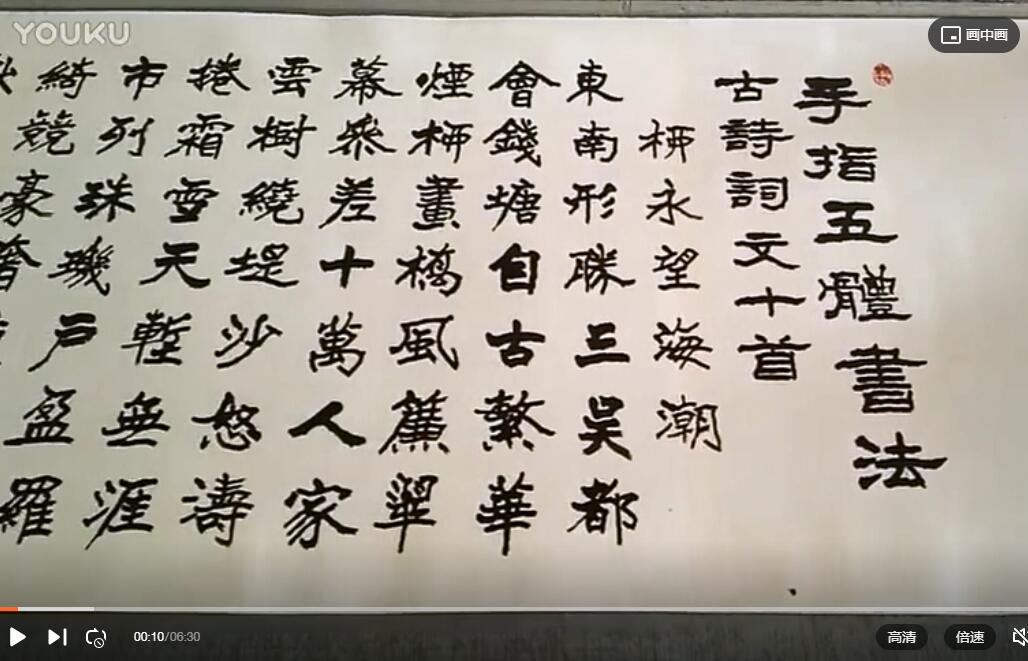 YOUKU
画中画
手指五體書法
古詩詞文十首
柳永望海潮
東南形勝三吳都
會錢塘自古繁華
煙柳畫橋風簾翠
幕參差十萬人家
雲樹繞堤沙怒濤
捲霜雪天塹無涯
市列珠璣戶盈羅
綺競豪奢
00:10/06:30
高清
倍速